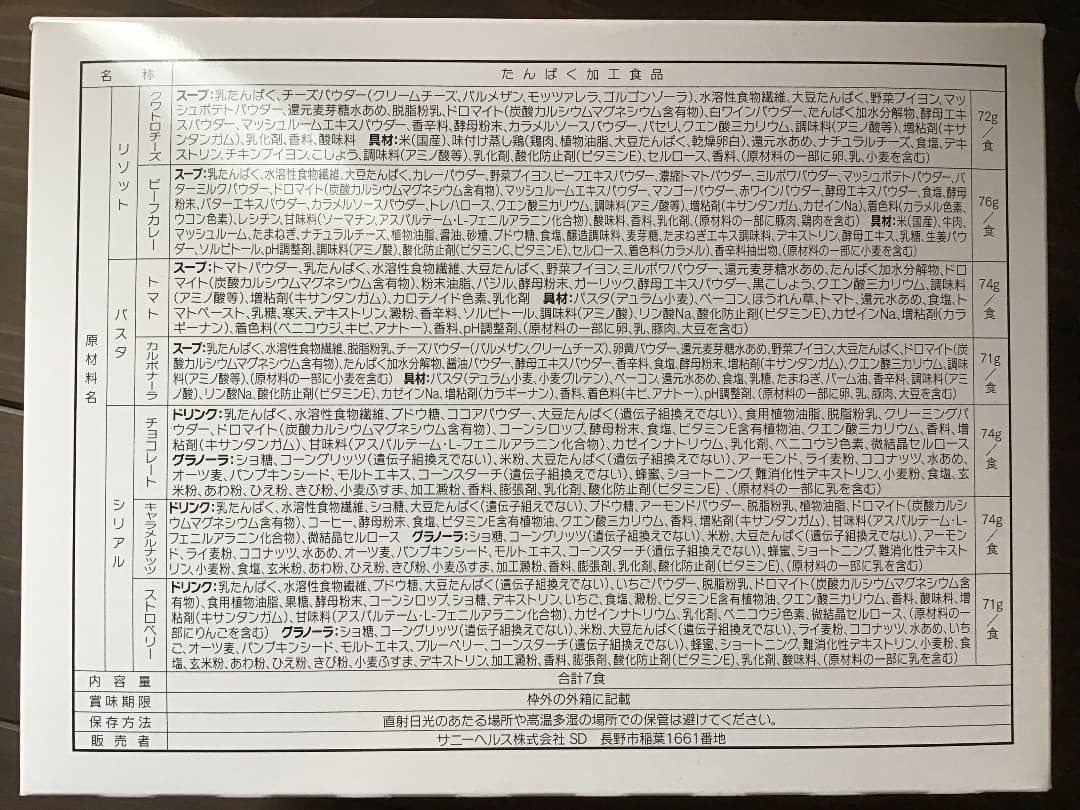 名称 たんぱく加工食品
原材料名
リゾット
クワトロチーズ
スープ:乳たんぱく、チーズパウダー(クリームチーズ、パルメザン、モッツァレラ、ゴルゴンゾーラ)、水溶性食物繊維、大豆たんぱく、野菜ブイヨン、マッ
シュポテトパウダー、還元麦芽糖水あめ、脱脂粉乳、ドロマイト(炭酸カルシウムマグネシウム含有物)、白ワインパウダー、たんぱく加水分解物、酵母エキ
スパウダー、マッシュルームエキスパウダー、香辛料、酵母粉末、カラメルソースパウダー、パセリ、クエン酸三カリウム、調味料(アミノ酸等)、増粘剤(キサ
ンタンガム)、乳化剤、香料、酸味料 具材:米(国産)、味付け蒸し鶏(鶏肉、植物油脂、大豆たんぱく、乾燥卵白)、還元水あめ、ナチュラルチーズ、食塩、デキ
ストリン、チキンブイヨン、こしょう、調味料(アミノ酸等)、乳化剤、酸化防止剤(ビタミンE)、セルロース、香料、(原材料の一部に卵、乳、小麦を含む)
72g/食
ビーフカレー
スープ:乳たんぱく、水溶性食物繊維、大豆たんぱく、カレーパウダー、野菜ブイヨン、ビーフエキスパウダー、濃縮トマトパウダー、ミルポワパウダー、マッシュポテトパウダー、バ
ターミルクパウダー、ドロマイト(炭酸カルシウムマグネシウム含有物)、マッシュルームエキスパウダー、マンゴーパウダー、赤ワインパウダー、酵母エキスパウダー、食塩、酵母
粉末、バターエキスパウダー、カラメルソースパウダー、トレハロース、クエン酸三カリウム、調味料(アミノ酸等)、増粘剤(キサンタンガム、カゼインNa)、着色料(カラメル色素、
ウコン色素)、レシチン、甘味料(ソーマチン、アスパルテーム・L-フェニルアラニン化合物)、酸味料、香料、乳化剤、(原材料の一部に豚肉、鶏肉を含む) 具材:米(国産)、牛肉、
マッシュルーム、たまねぎ、ナチュラルチーズ、植物油脂、醤油、砂糖、ブドウ糖、食塩、醸造調味料、麦芽糖、たまねぎエキス調味料、デキストリン、酵母エキス、乳糖、生姜パウ
ダー、ソルビトール、pH調整剤、調味料(アミノ酸)、酸化防止剤(ビタミンC、ビタミンE)、セルロース、着色料(カラメル)、香辛料抽出物、(原材料の一部に小麦を含む)
76g/食
パスタ
トマト
スープ:トマトパウダー、乳たんぱく、水溶性食物繊維、大豆たんぱく、野菜ブイヨン、ミルポワパウダー、還元麦芽糖水あめ、たんぱく加水分解物、ドロ
マイト(炭酸カルシウムマグネシウム含有物)、粉末油脂、バジル、酵母粉末、ガーリック、酵母エキスパウダー、黒こしょう、クエン酸三カリウム、調味料
(アミノ酸等)、増粘剤(キサンタンガム)、カロテノイド色素、乳化剤 具材:パスタ(デュラム小麦)、ベーコン、ほうれん草、トマト、還元水あめ、食塩、ト
マトペースト、乳糖、寒天、デキストリン、澱粉、香辛料、ソルビトール、調味料(アミノ酸)、リン酸Na、酸化防止剤(ビタミンE)、カゼインNa、増粘剤(カラ
ギーナン)、着色料(ベニコウジ、キビ、アナトー)、香料、pH調整剤、(原材料の一部に卵、乳、豚肉、大豆を含む)
74g/食
カルボナーラ
スープ:乳たんぱく、水溶性食物繊維、脱脂粉乳、チーズパウダー(パルメザン、クリームチーズ)、卵黄パウダー、還元麦芽糖水あめ、野菜ブイヨン、大豆たんぱく、ドロマイト(炭
酸カルシウムマグネシウム含有物)、たんぱく加水分解物、醤油パウダー、酵母エキスパウダー、香辛料、食塩、酵母粉末、増粘剤(キサンタンガム)、クエン酸三カリウム、調味
料(アミノ酸等)、(原材料の一部に小麦を含む) 具材:パスタ(デュラム小麦、小麦グルテン)、ベーコン、還元水あめ、食塩、乳糖、たまねぎ、パーム油、香辛料、調味料(アミ
ノ酸)、リン酸Na、酸化防止剤(ビタミンE)、カゼインNa、増粘剤(カラギーナン)、香料、着色料(キビ、アナトー)、pH調整剤、(原材料の一部に卵、乳、豚肉、大豆を含む)
71g/食
シリアル
チョコレート
ドリンク:乳たんぱく、水溶性食物繊維、ブドウ糖、ココアパウダー、大豆たんぱく(遺伝子組換えでない)、食用植物油脂、脱脂粉乳、クリーミングパ
ウダー、ドロマイト(炭酸カルシウムマグネシウム含有物)、コーンシロップ、酵母粉末、食塩、ビタミンE含有植物油、クエン酸三カリウム、香料、増
粘剤(キサンタンガム)、甘味料(アスパルテーム・L-フェニルアラニン化合物)、カゼインナトリウム、乳化剤、ベニコウジ色素、微結晶セルロース
グラノーラ:ショ糖、コーングリッツ(遺伝子組換えでない)、米粉、大豆たんぱく(遺伝子組換えでない)、アーモンド、ライ麦粉、ココナッツ、水あめ、
オーツ麦、パンプキンシード、モルトエキス、コーンスターチ(遺伝子組換えでない)、蜂蜜、ショートニング、難消化性デキストリン、小麦粉、食塩、玄
米粉、あわ粉、ひえ粉、きび粉、小麦ふすま、加工澱粉、香料、膨張剤、乳化剤、酸化防止剤(ビタミンE)、(原材料の一部に乳を含む)
74g/食
キャラメルナッツ
ドリンク:乳たんぱく、水溶性食物繊維、ショ糖、大豆たんぱく(遺伝子組換えでない)、ブドウ糖、アーモンドパウダー、脱脂粉乳、植物油脂、ドロマイト(炭酸カルシ
ウムマグネシウム含有物)、コーヒー、酵母粉末、食塩、ビタミンE含有植物油、クエン酸三カリウム、香料、増粘剤(キサンタンガム)、甘味料(アスパルテーム・L-
フェニルアラニン化合物)、微結晶セルロース グラノーラ:ショ糖、コーングリッツ(遺伝子組換えでない)、米粉、大豆たんぱく(遺伝子組換えでない)、アーモン
ド、ライ麦粉、ココナッツ、水あめ、オーツ麦、パンプキンシード、モルトエキス、コーンスターチ(遺伝子組換えでない)、蜂蜜、ショートニング、難消化性デキスト
リン、小麦粉、食塩、玄米粉、あわ粉、ひえ粉、きび粉、小麦ふすま、加工澱粉、香料、膨張剤、乳化剤、酸化防止剤(ビタミンE)、(原材料の一部に乳を含む)
74g/食
ストロベリー
ドリンク:乳たんぱく、水溶性食物繊維、ブドウ糖、大豆たんぱく(遺伝子組換えでない)、いちごパウダー、脱脂粉乳、ドロマイト(炭酸カルシウムマグネシウム含
有物)、食用植物油脂、果糖、酵母粉末、コーンシロップ、ショ糖、デキストリン、いちご、食塩、澱粉、ビタミンE含有植物油、クエン酸三カリウム、香料、酸味料、増
粘剤(キサンタンガム)、甘味料(アスパルテーム・L-フェニルアラニン化合物)、カゼインナトリウム、乳化剤、ベニコウジ色素、微結晶セルロース、(原材料の一
部にりんごを含む) グラノーラ:ショ糖、コーングリッツ(遺伝子組換えでない)、米粉、大豆たんぱく(遺伝子組換えでない)、ライ麦粉、ココナッツ、水あめ、いち
ご、オーツ麦、パンプキンシード、モルトエキス、ブルーベリー、コーンスターチ(遺伝子組換えでない)、蜂蜜、ショートニング、難消化性デキストリン、小麦粉、食
塩、玄米粉、あわ粉、ひえ粉、きび粉、小麦ふすま、デキストリン、加工澱粉、香料、膨張剤、酸化防止剤(ビタミンE)、乳化剤、酸味料、(原材料の一部に乳を含む)
71g/食
内容量 合計7食
賞味期限 枠外の外箱に記載
保存方法 直射日光のあたる場所や高温多湿の場所での保管は避けてください。
販売者 サニーヘルス株式会社 SD 長野市稲葉1661番地